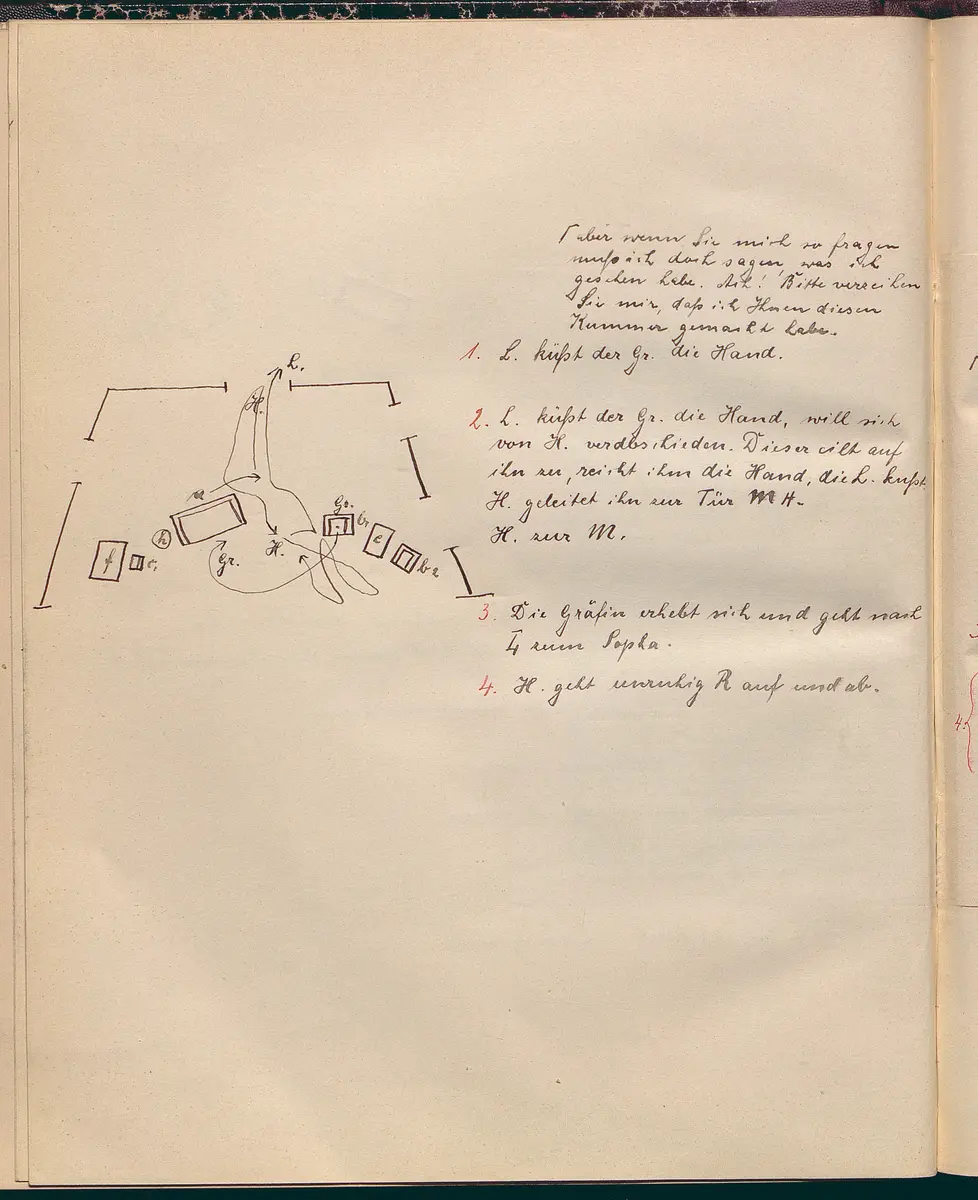 Γ aber wenn Sie mich so fragen
muß ich doch sagen, was ich
gesehen habe. Ach! Bitte verzeihen
Sie mir, daß ich Ihnen diesen
Kummer gemacht habe.
1. L. küßt der Gr. die Hand.
2. L. küßt der Gr. die Hand, will sich
von H. verabschieden. Dieser eilt auf
ihn zu, reicht ihm die Hand, die L. küßt
H. geleitet ihn zur Tür M H.
H. zur M.
3. Die Gräfin erhebt sich und geht nach
L zum Sopha.
4. H. geht unruhig R auf und ab.
L.
H.
a
Gr.
b1
h
H.
e
f
c,
Gr.
b2
4.